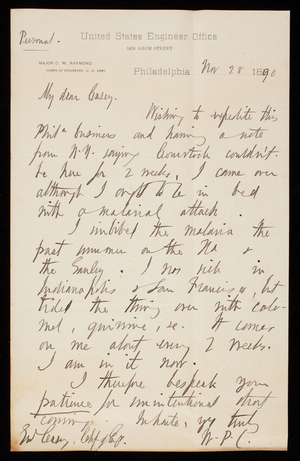 Personal.
United States Engineer Office
1428 ARCH STREET
MAJOR C. W. RAYMOND
CORPS OF ENGINEERS, U. S. ARMY
Philadelphia Nov 28 1890
My dear Casey.
Wishing to expedite this
Phila business and having a note
from N.Y. saying Comstock couldn't
be here for 2 weeks, I came over
although I ought to be in bed
with a malarial attack.
I imbibed the malaria the
past summer on the
the Gauley. I was sick in
Indianapolis & San Francisco, but
tided the thing over with calo-
mel, quinine, &c. It comes
on me about every 2 weeks.
I am in it now.
I therefore bespeak your
patience for unintentional short
comings. In haste, yrs truly
Casey, Chf of Eng. W. P. C.